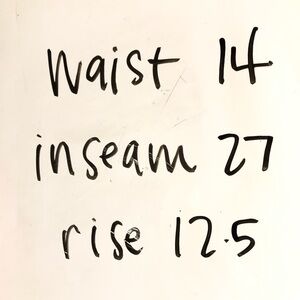 waist 14
inseam 27
rise 12.5